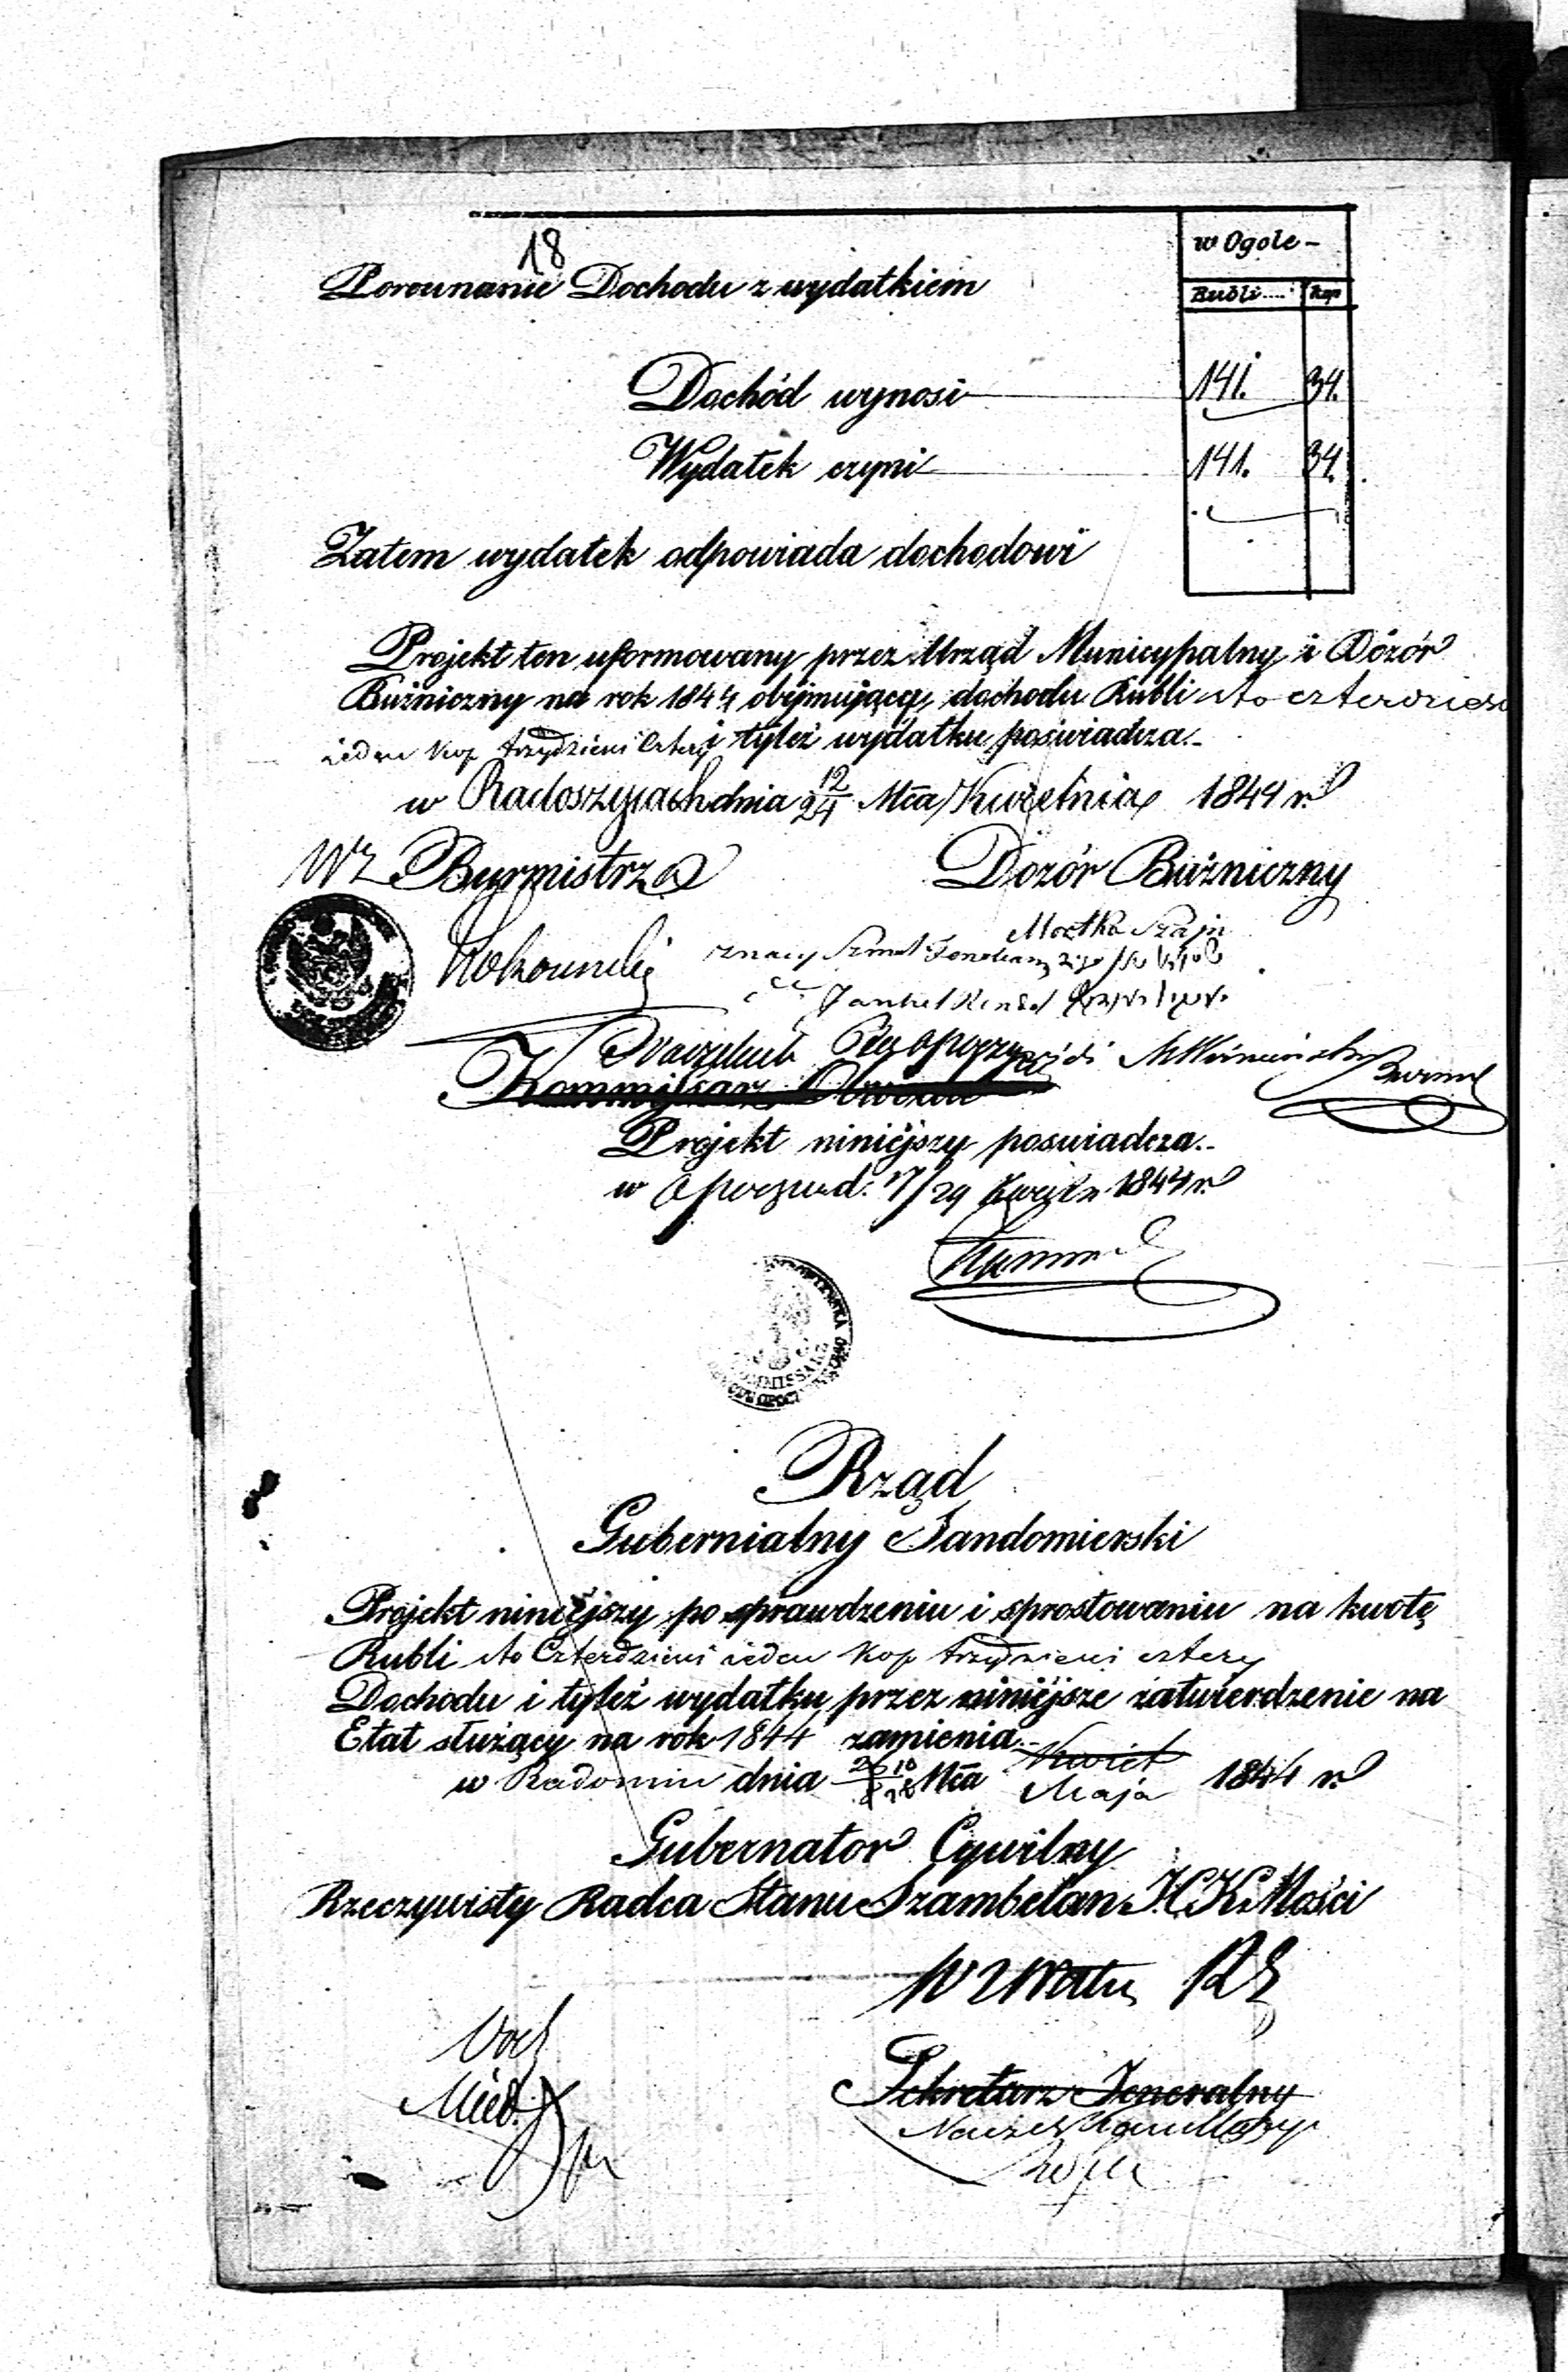 18
w Ogole -
Porównanie Dochodu z wydatkiem
Rubli Kop
Dochód wynosi 141. 34.
Wydatek czyni 141. 34.
Zatem wydatek odpowiada dochodowi
Projekt ten uformowany przez Urząd Municypalny i Dozór
Bużniczny na rok 1844 obejmujący dochodu Rubli sto czterdzieści
ieden kop trzydzieści cztery i tyleż wydatku poświadcza.-
w Radoszycach dnia 12/24 Mca Kwietnia 1844 r.
WZ Burmistrza Dozór Bużniczny
Moszka Szaja
znaczy Szmul
Jankel
Naczelnik Ptu Opoczyń
Kommissarz Obwodu
Projekt niniéjszy poswiadcza.-
w Opocznie d: 17/29 Kwietn 1844 r.
Rząd
Gubernialny Sandomierski
Projekt niniejszy po sprawdzeniu i sprostowaniu na kwotę
Rubli sto Czterdzieści ieden kop trzydzieści cztery
Dochodu i tyleż wydatku przez niniéjsze zatwierdzenie na
Etat służący na rok 1844 zamienia.-
w Radomiu dnia Mca Kwiet Maja 1844 r.
Gubernator Cywilny
Rzeczywisty Radca Stanu Szambelan J.C.K. Mości
Sekretarz Jeneralny